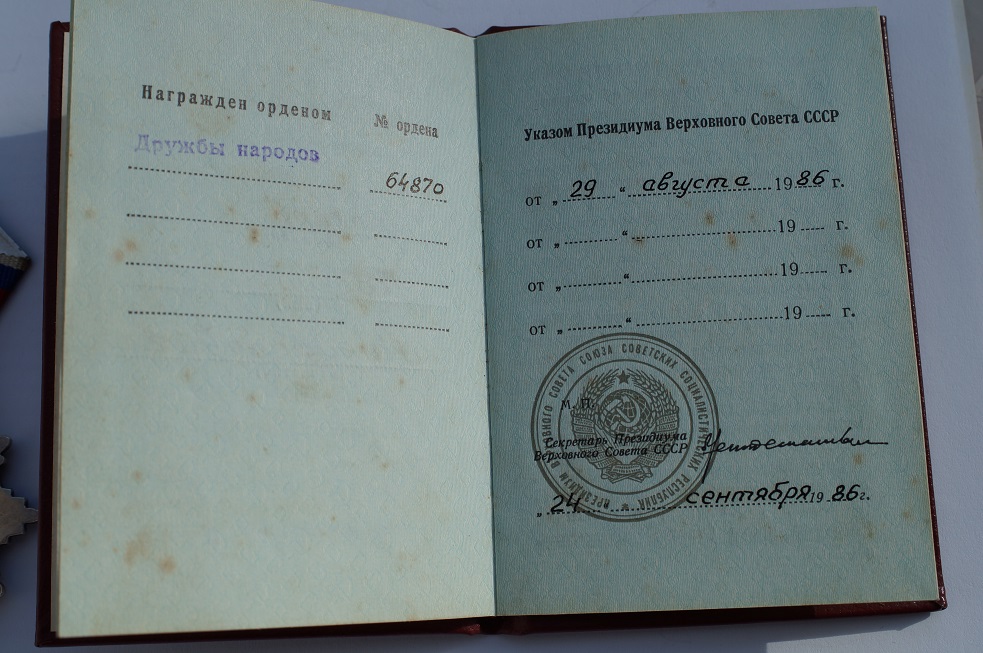 Награжден орденом
№ ордена
Дружбы народов
64870
Указом Президиума Верховного Совета СССР
от „ 29 “ августа 1986 г.
от „ “ 19 г.
от „ “ 19 г.
от „ “ 19 г.
ПРЕЗИДИУМ ВЕРХОВНОГО СОВЕТА СОЮЗА СОВЕТСКИХ СОЦИАЛИСТИЧЕСКИХ РЕСПУБЛИК
М. П.
Секретарь Президиума
Верховного Совета СССР
„ 24 сентября 1986 г.